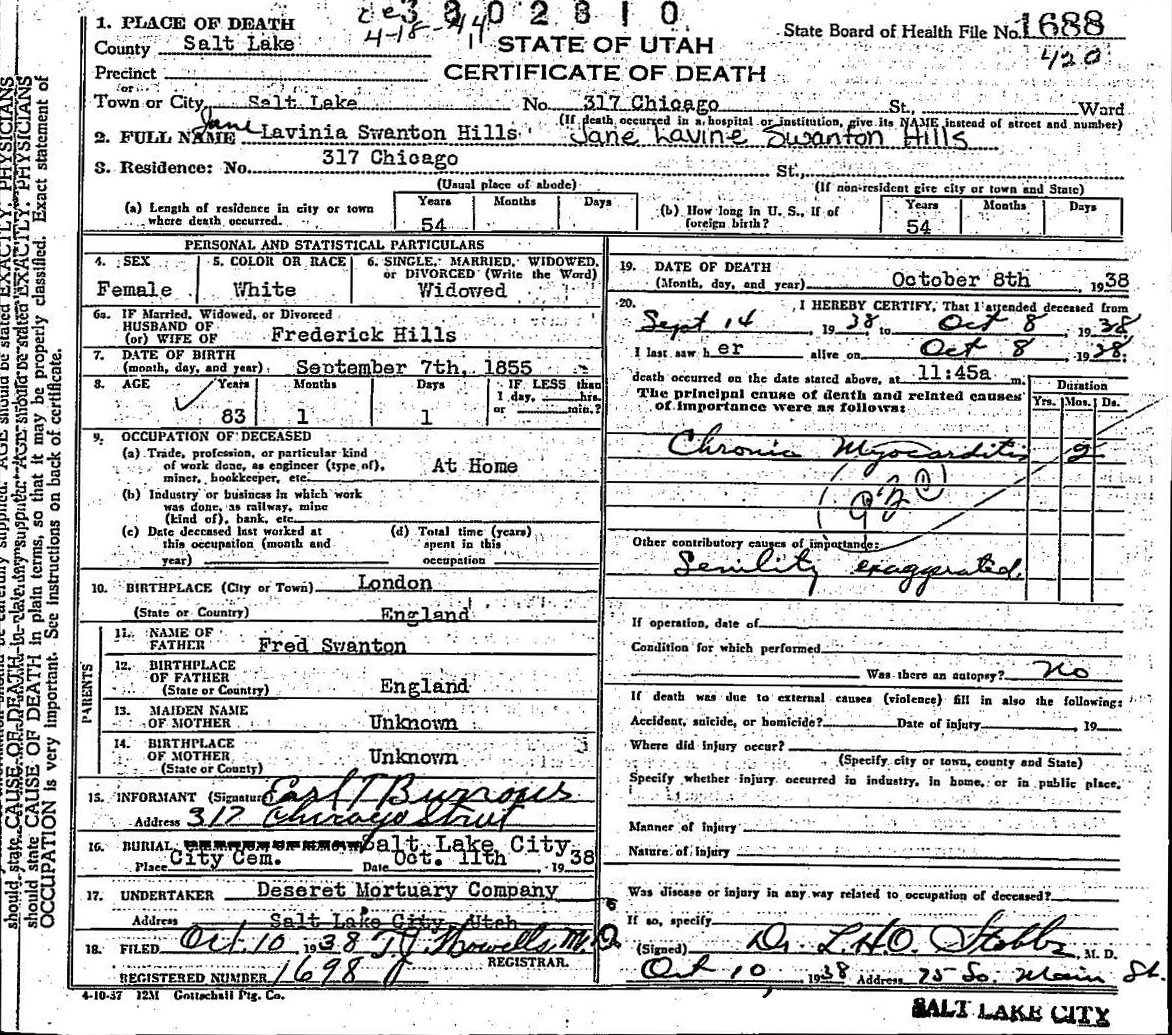 3802810
4-18-44
1. PLACE OF DEATH
County Salt Lake
STATE OF UTAH
CERTIFICATE OF DEATH
State Board of Health File No. 1688
420
Precinct
or
Town or City Salt Lake No. 317 Chicago St. Ward
(If death occurred in a hospital or institution, give its NAME instead of street and number)
2. FULL NAME Jane Lavinia Swanton Hills Jane Lavine Swanton Hills
3. Residence: No. 317 Chicago St.,
(Usual place of abode) (If non-resident give city or town and State)
(a) Length of residence in city or town where death occurred. Years 54 Months Days
(b) How long in U. S., if of foreign birth? Years 54 Months Days
PERSONAL AND STATISTICAL PARTICULARS
4. SEX Female
5. COLOR OR RACE White
6. SINGLE, MARRIED, WIDOWED, or DIVORCED (Write the Word) Widowed
6a. IF Married, Widowed, or Divorced
HUSBAND OF
(or) WIFE OF Frederick Hills
7. DATE OF BIRTH
(month, day, and year) September 7th, 1855
8. AGE Years 83 Months 1 Days 1 IF LESS than 1 day, hrs. or min.?
9. OCCUPATION OF DECEASED
(a) Trade, profession, or particular kind
of work done, as engineer (type of),
miner, bookkeeper, etc. At Home
(b) Industry or business in which work
was done, as railway, mine
(kind of), bank, etc.
(c) Date deceased last worked at
this occupation (month and
year)
(d) Total time (years)
spent in this
occupation
10. BIRTHPLACE (City or Town) London
(State or Country) England
PARENTS
11. NAME OF
FATHER Fred Swanton
12. BIRTHPLACE
OF FATHER
(State or Country) England
13. MAIDEN NAME
OF MOTHER Unknown
14. BIRTHPLACE
OF MOTHER
(State or County) Unknown
15. INFORMANT (Signature) Earl T Burrows
Address 317 Chicago Street
16. BURIAL, Salt Lake City
Place City Cem. Date Oct. 11th, 1938
17. UNDERTAKER Deseret Mortuary Company
Address Salt Lake City, Utah
18. FILED Oct. 10 1938 T.J. Howells M.D.
REGISTRAR.
REGISTERED NUMBER 1698
4-10-37 12M Gottschall Ptg. Co.
19. DATE OF DEATH
(Month, day, and year) October 8th, 1938
20. I HEREBY CERTIFY, That I attended deceased from
Sept 14, 1938 to Oct 8, 1938
I last saw her alive on Oct 8, 1938;
death occurred on the date stated above, at 11:45a m.
The principal cause of death and related causes
of importance were as follows:
Duration
Yrs. Mos. Ds.
Chronic Myocarditis 2
Other contributory causes of importance:
Senility exaggerated.
If operation, date of
Condition for which performed
Was there an autopsy? No
If death was due to external causes (violence) fill in also the following:
Accident, suicide, or homicide? Date of injury 19
Where did injury occur?
(Specify city or town, county and State)
Specify whether injury occurred in industry, in home, or in public place,
Manner of injury
Nature of injury
Was disease or injury in any way related to occupation of deceased?
If so, specify
(Signed) Dr. L.H.O. Stobbe, M. D.
Oct 10, 1938 Address 75 So. Main St.
SALT LAKE CITY
AGE should be stated EXACTLY. PHYSICIANS
should state CAUSE OF DEATH in plain terms, so that it may be properly classified. Exact statement of
OCCUPATION is very important. See instructions on back of certificate.